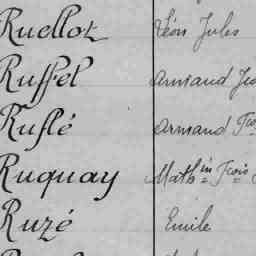 Ruellot Léon Jules
Ruffel Armand
Ruflé Armand Fçois
Ruquay Mathin Fçois
Ruzé Emile